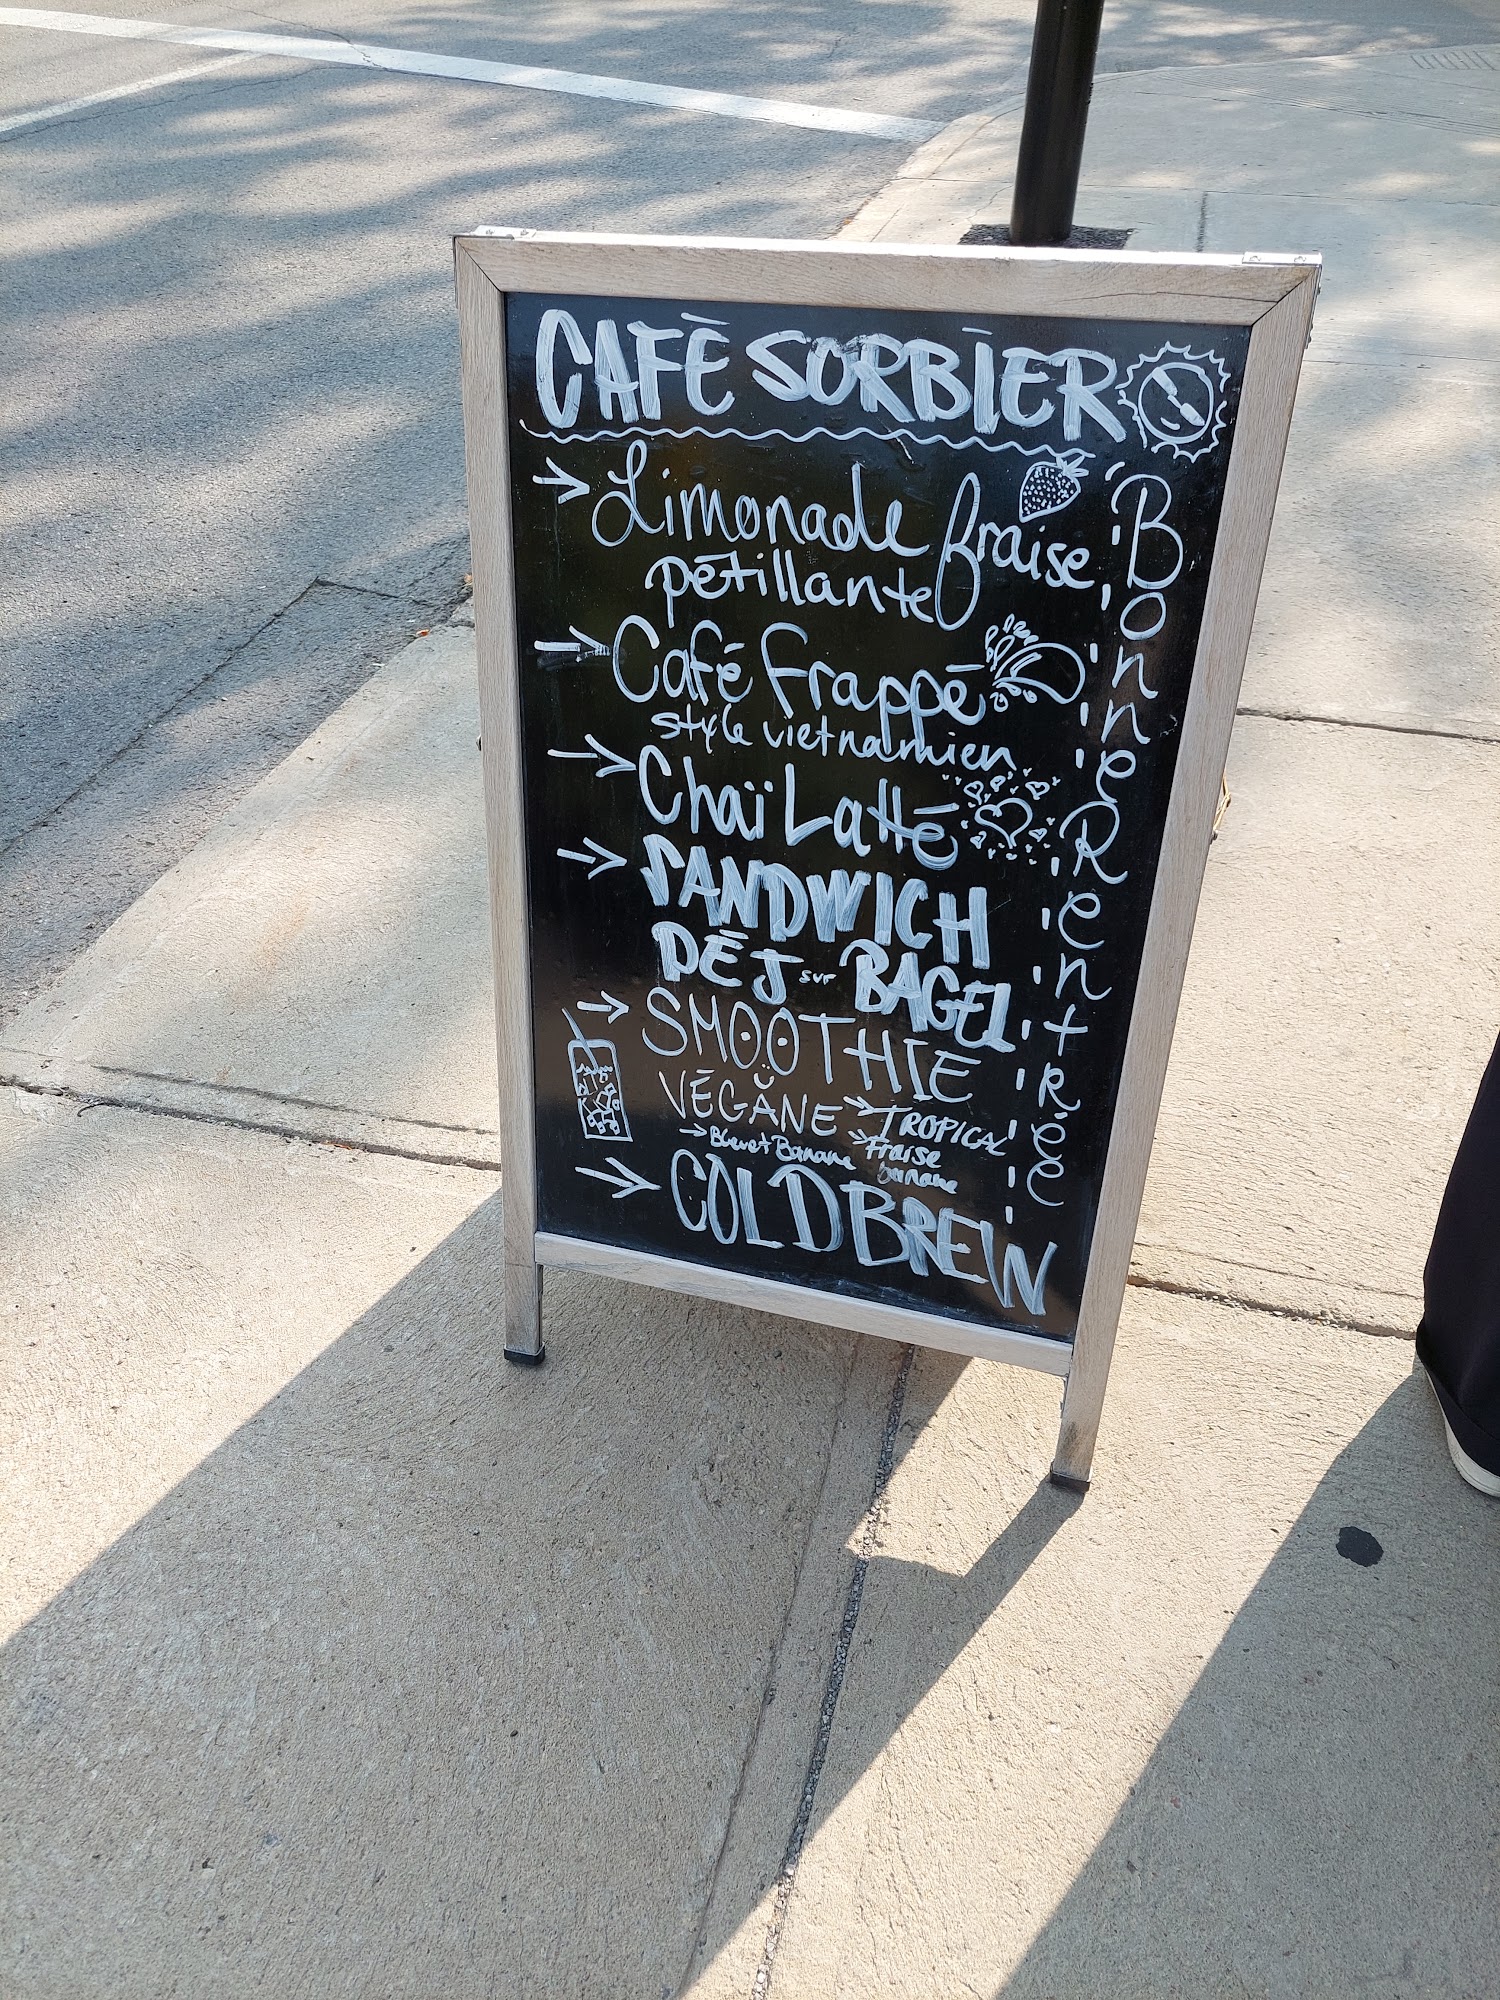 CAFÉ SORBIER
Limonade fraise
pétillante
Café Frappé
style vietnamien
Chaï Latté
SANDWICH
DÉJ sur BAGEL
SMOOTHIE
VÉGANE TROPICAL
Bleuet Banane Fraise
banane
COLD BREW
Bonne Rentrée